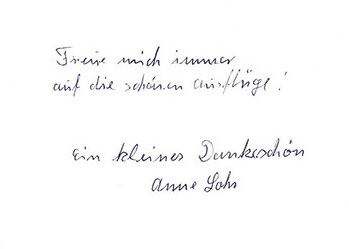 Freue mich immer
auf die schönen ausflüge!
ein kleines Dankeschön
Anne Lohs